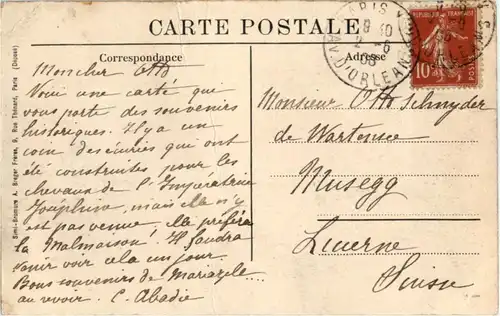 CARTE POSTALE
Correspondance
Adresse
PARIS
9 10
2 - 6
08
AV. D'ORLEANS
10
Mon cher Otto
Voici une carte qui
vous porte des souvenirs
historiques. Il y a un
coin des écuries qui ont
été construites pour les
chevaux de l'Impératrice
Joséphine, mais elle n'y
est pas venue, elle préféra
la Malmaison! Il faudra
venir voir cela un jour.
Bons souvenirs de
au revoir. C. Abadie
Monsieur Otto Schnyder
de Wartensee
Musegg
Lucerne
Suisse
Semi-Bromure A. Breger Frères, 9, Rue Thénard, Paris (Déposé)